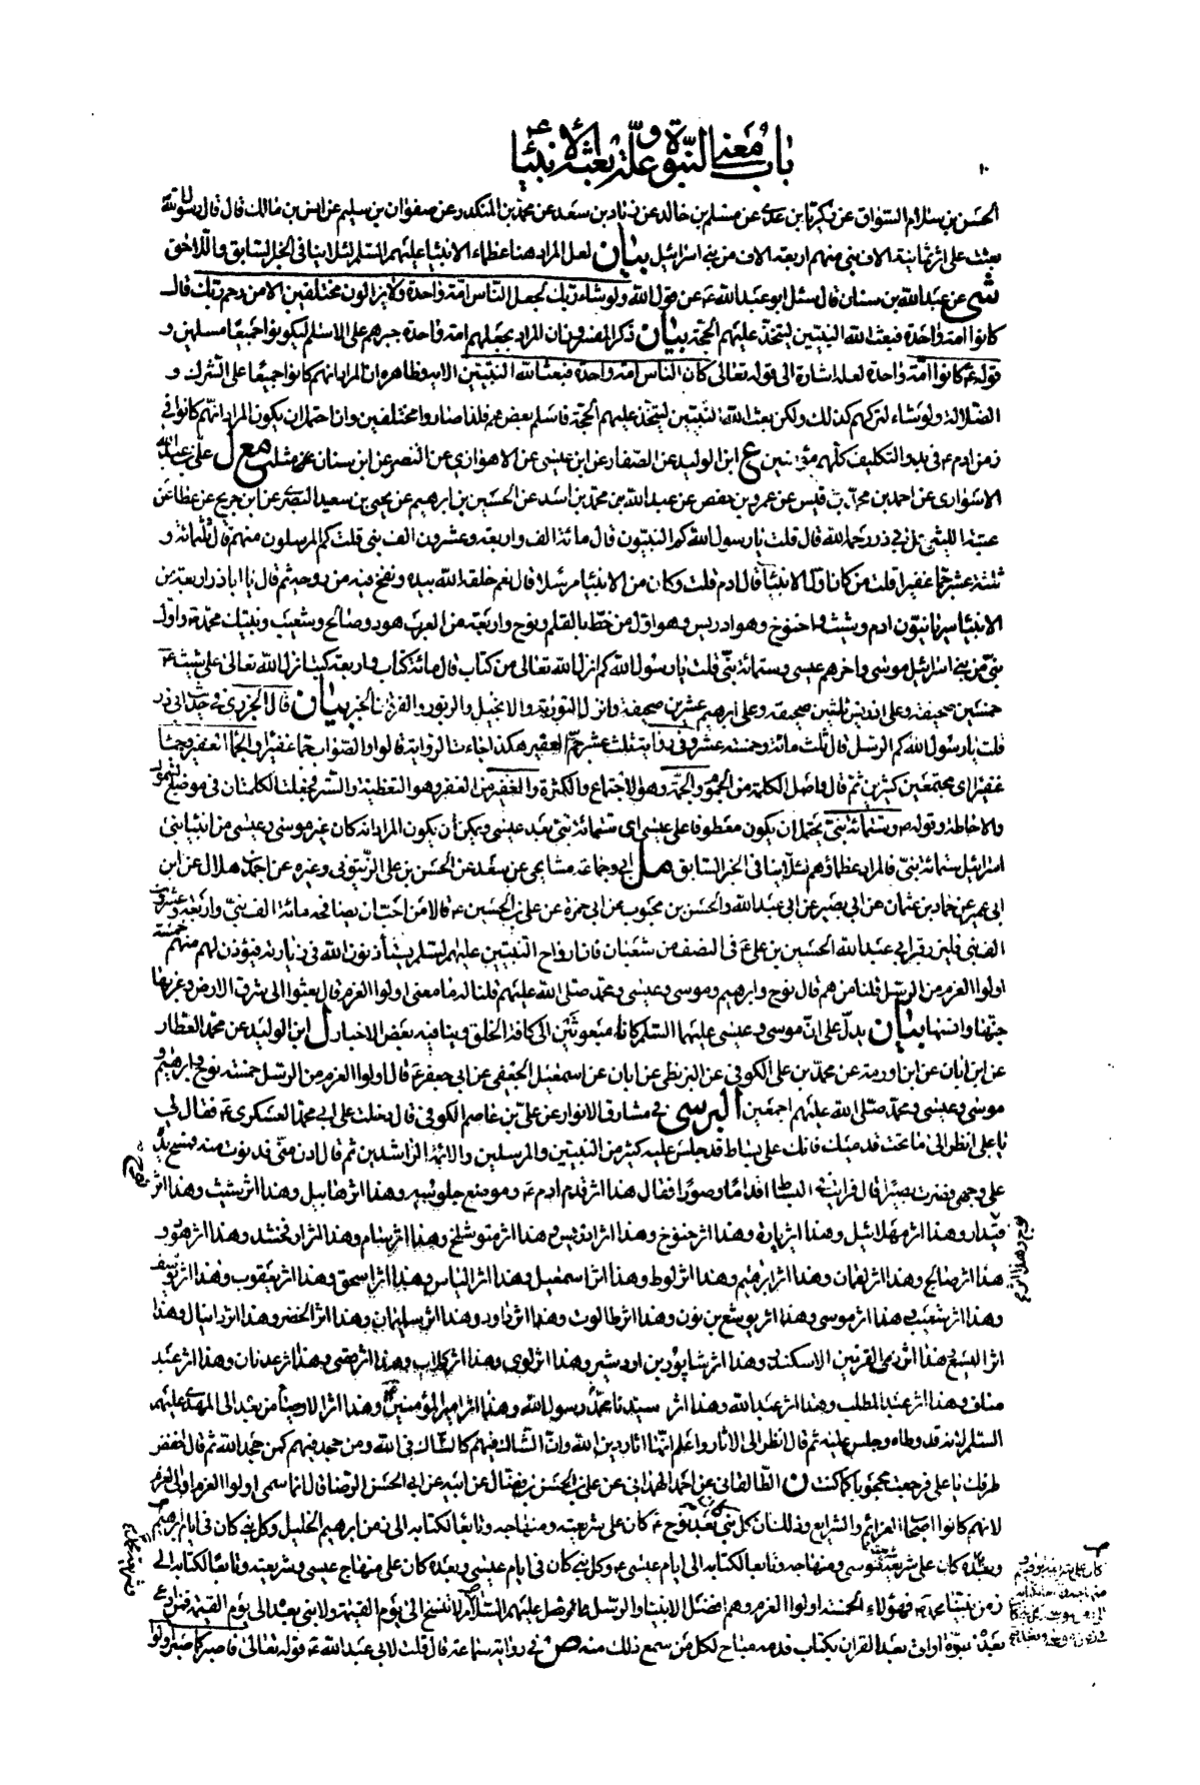 باب معنى النبوة وعلة بعثة الأنبياء
١٠
الحسن بن سلام السواق عن زكريا بن عدي عن مسلم بن خالد عن زياد بن سعد عن محمد بن المنكدر عن صفوان بن سليم عن انس بن مالك قال قال رسول الله
بعثت على اثر ثمانية الاف نبي منهم اربعة الاف من بني اسرائيل بيان لعل المراد هنا عظماء الانبياء عليهم السلم لئلا ينافي الخبر السابق واللاحق
شي عن عبد الله بن سنان قال سئل ابو عبد الله ع عن قول الله ولو شاء ربك لجعل الناس امة واحدة ولا يزالون مختلفين الا من رحم ربك قال
كانوا امة واحدة فبعث الله النبيين ليتخذ عليهم الحجة بيان ذكر المفسرون ان المراد بجعلهم امة واحدة جبرهم على الاسلم ليكونوا جميعا مسلمين و
قوله ع كانوا امة واحدة لعله اشارة الى قوله تعالى كان الناس امة واحدة فبعث الله النبيين الاية وظاهره ان المراد انهم كانوا جميعا على الشرك و
الضلالة ولو شاء لتركهم كذلك ولكن بعث الله النبيين ليتخذ عليهم الحجة فاسلم بعضهم فلذا صاروا مختلفين وان احتمل ان يكون المراد انهم كانوا في
زمن ادم ع في بدو التكليف كلهم مؤمنين ع ابن الوليد عن الصفار عن ابن عيسى عن الاهوازي عن النضر عن ابن سنان عنه مثله مع ل علي بن عبد الله
الاسواري عن احمد بن محمد بن قيس عن عمرو بن حفص عن عبد الله بن محمد بن اسد عن الحسين بن ابرهيم عن يحيى بن سعيد البصري عن ابن جريح عن عطا عن
عتبة الليثي عن ابي ذر رحمه الله قال قلت يا رسول الله كم النبيون قال مائة الف واربعة وعشرون الف نبي قلت كم المرسلون منهم قال ثلثمائة و
ثلثة عشر جما غفيرا قلت من كان اول الانبياء قال ادم قلت وكان من الانبياء مرسلا قال نعم خلقه الله بيده ونفخ فيه من روحه ثم قال يا ابا ذر اربعة من
الانبياء سريانيون ادم وشيث واخنوخ وهو ادريس وهو اول من خط بالقلم ونوح واربعة من العرب هود وصالح وشعيب ونبيك محمد ص واول
نبي من بني اسرائيل موسى واخرهم عيسى وستمائة نبي قلت يا رسول الله كم انزل الله تعالى من كتاب قال مائة كتاب واربعة كتب انزل الله تعالى على شيث ع
خمسين صحيفة وعلى ادريس ثلثين صحيفة وعلى ابرهيم عشرين صحيفة وانزل التورية والانجيل والزبور والفرقان الخبر بيان قال الجزري فيه حديث ابي ذر
قلت يا رسول الله كم الرسل قال ثلث مائة وخمسة عشر وفي رواية ثلث عشر جم الغفير هكذا جاءت الرواية قالوا والصواب جما غفيرا
غفيرا اي مجتمعين كثيرين ثم قال واصل الكلمة من الجموم والجمة وهو الاجتماع والكثرة والغفير من الغفر وهو التغطية والستر فجعلت الكلمتان في موضع الشمول
والاحاطة وقوله ص وستمائة نبي يحتمل ان يكون معطوفا على عيسى اي ستمائة نبي بعد عيسى ويمكن أن يكون المراد انه كان غير موسى وعيسى من انبياء بني
اسرائيل ستمائة نبي فالمراد عظماؤهم لئلا ينافي الخبر السابق مل ابي وجماعة مشايخي عن سعد عن الحسن بن علي الزيتوني وغيره عن احمد بن هلال عن ابن
ابي عمير عن حماد بن عثمان عن ابي بصير عن ابي عبد الله والحسن بن محبوب عن ابي حمزة عن علي بن الحسين ع قالا من احب ان يصافحه مائة الف نبي واربعة وعشرون
الف نبي فليزر قبر ابي عبد الله الحسين بن علي ع في النصف من شعبان فان ارواح النبيين عليهم السلم يستأذنون الله في زيارته فيؤذن لهم منهم خمسة
اولوا العزم من الرسل قلنا من هم قال نوح وابرهيم وموسى وعيسى ومحمد صلى الله عليهم قلنا له ما معنى اولوا العزم قال بعثوا الى شرق الارض وغربها
جنها وانسها بيان يدل على ان موسى وعيسى عليهما السلم كانا مبعوثين الى كافة الخلق وينافيه بعض الاخبار ل ابن الوليد عن محمد العطار
عن ابن ابان عن ابن اورمة عن محمد بن علي الكوفي عن البزنطي عن ابان عن اسمعيل الجعفي عن ابي جعفر ع قال اولوا العزم من الرسل خمسة نوح وابرهيم و
موسى وعيسى ومحمد صلى الله عليهم اجمعين البرسي في مشارق الانوار عن علي بن عاصم الكوفي قال دخلت على ابي محمد العسكري ع فقال لي
يا علي انظر الى ما تحت قدميك فانك على بساط قد جلس عليه كثير من النبيين والمرسلين والائمة الراشدين ثم قال ادن مني فدنوت منه فمسح يده
على وجهي فصرت بصيرا قال فرايت في البساط اقداما وصورا فقال هذا اثر قدم ادم ع وموضع جلوسه وهذا اثر هابيل وهذا اثر شيث وهذا اثر
قيدار وهذا اثر مهلائيل وهذا اثر يارة وهذا اثر خنوخ وهذا اثر ادريس وهذا اثر متوشلخ وهذا اثر سام وهذا اثر ارفخشد وهذا اثر هود و
هذا اثر صالح وهذا اثر لقمان وهذا اثر ابرهيم وهذا اثر لوط وهذا اثر اسمعيل وهذا اثر الياس وهذا اثر اسحق وهذا اثر يعقوب وهذا اثر يوسف
وهذا اثر شعيب وهذا اثر موسى وهذا اثر يوشع بن نون وهذا اثر طالوت وهذا اثر داود وهذا اثر سليمان وهذا اثر الخضر وهذا اثر دانيال وهذا
اثر اليسع وهذا اثر ذي القرنين الاسكندر وهذا اثر شابور بن اردشير وهذا اثر لوي وهذا اثر كلاب وهذا اثر قصي وهذا اثر عدنان وهذا اثر عبد
مناف وهذا اثر عبد المطلب وهذا اثر عبد الله وهذا اثر سيدنا محمد رسول الله وهذا اثر امير المؤمنين وهذا اثر الاوصيأ من بعده الى المهدي عليهم
السلم لانه قد وطاه وجلس عليه ثم قال انظر الى الاثار واعلم انها اثار دين الله وان الشاك فيهم كالشاك في الله ومن جحد فيهم كمن جحد الله ثم قال اخفض
طرفك يا علي فرجعت محجوبا كما كنت ن الطالقاني عن احمد الهمداني عن علي بن الحسن بن فضال عن ابيه عن ابي الحسن الرضا قال انما سمي اولوا العزم اولي العزم
لانهم كانوا اصحاب العزائم والشرايع وذلك ان كل نبي بعد نوح ع كان على شريعته ومنهاجه وتابعا لكتابه الى زمن ابرهيم الخليل وكل نبي كان في ايام ابرهيم
وبعده كان على شريعة موسى ومنهاجه وتابعا لكتابه الى ايام عيسى ع وكل نبي كان في ايام عيسى وبعده كان على منهاج عيسى وشريعته وتابعا لكتابه الى
زمن نبينا محمد ص فهؤلاء الخمسة اولوا العزم وهم افضل الانبياء والرسل عليهم السلام لا تنسخ الى يوم القيمة ولا نبي بعده الى يوم القيمة فمن ادعى
بعده نبوة او اتى بعد القرآن بكتاب فدمه مباح لكل من سمع ذلك منه ص في رواية سماعة قال قلت لابي عبد الله ع قوله تعالى فاصبر كما صبر اولوا